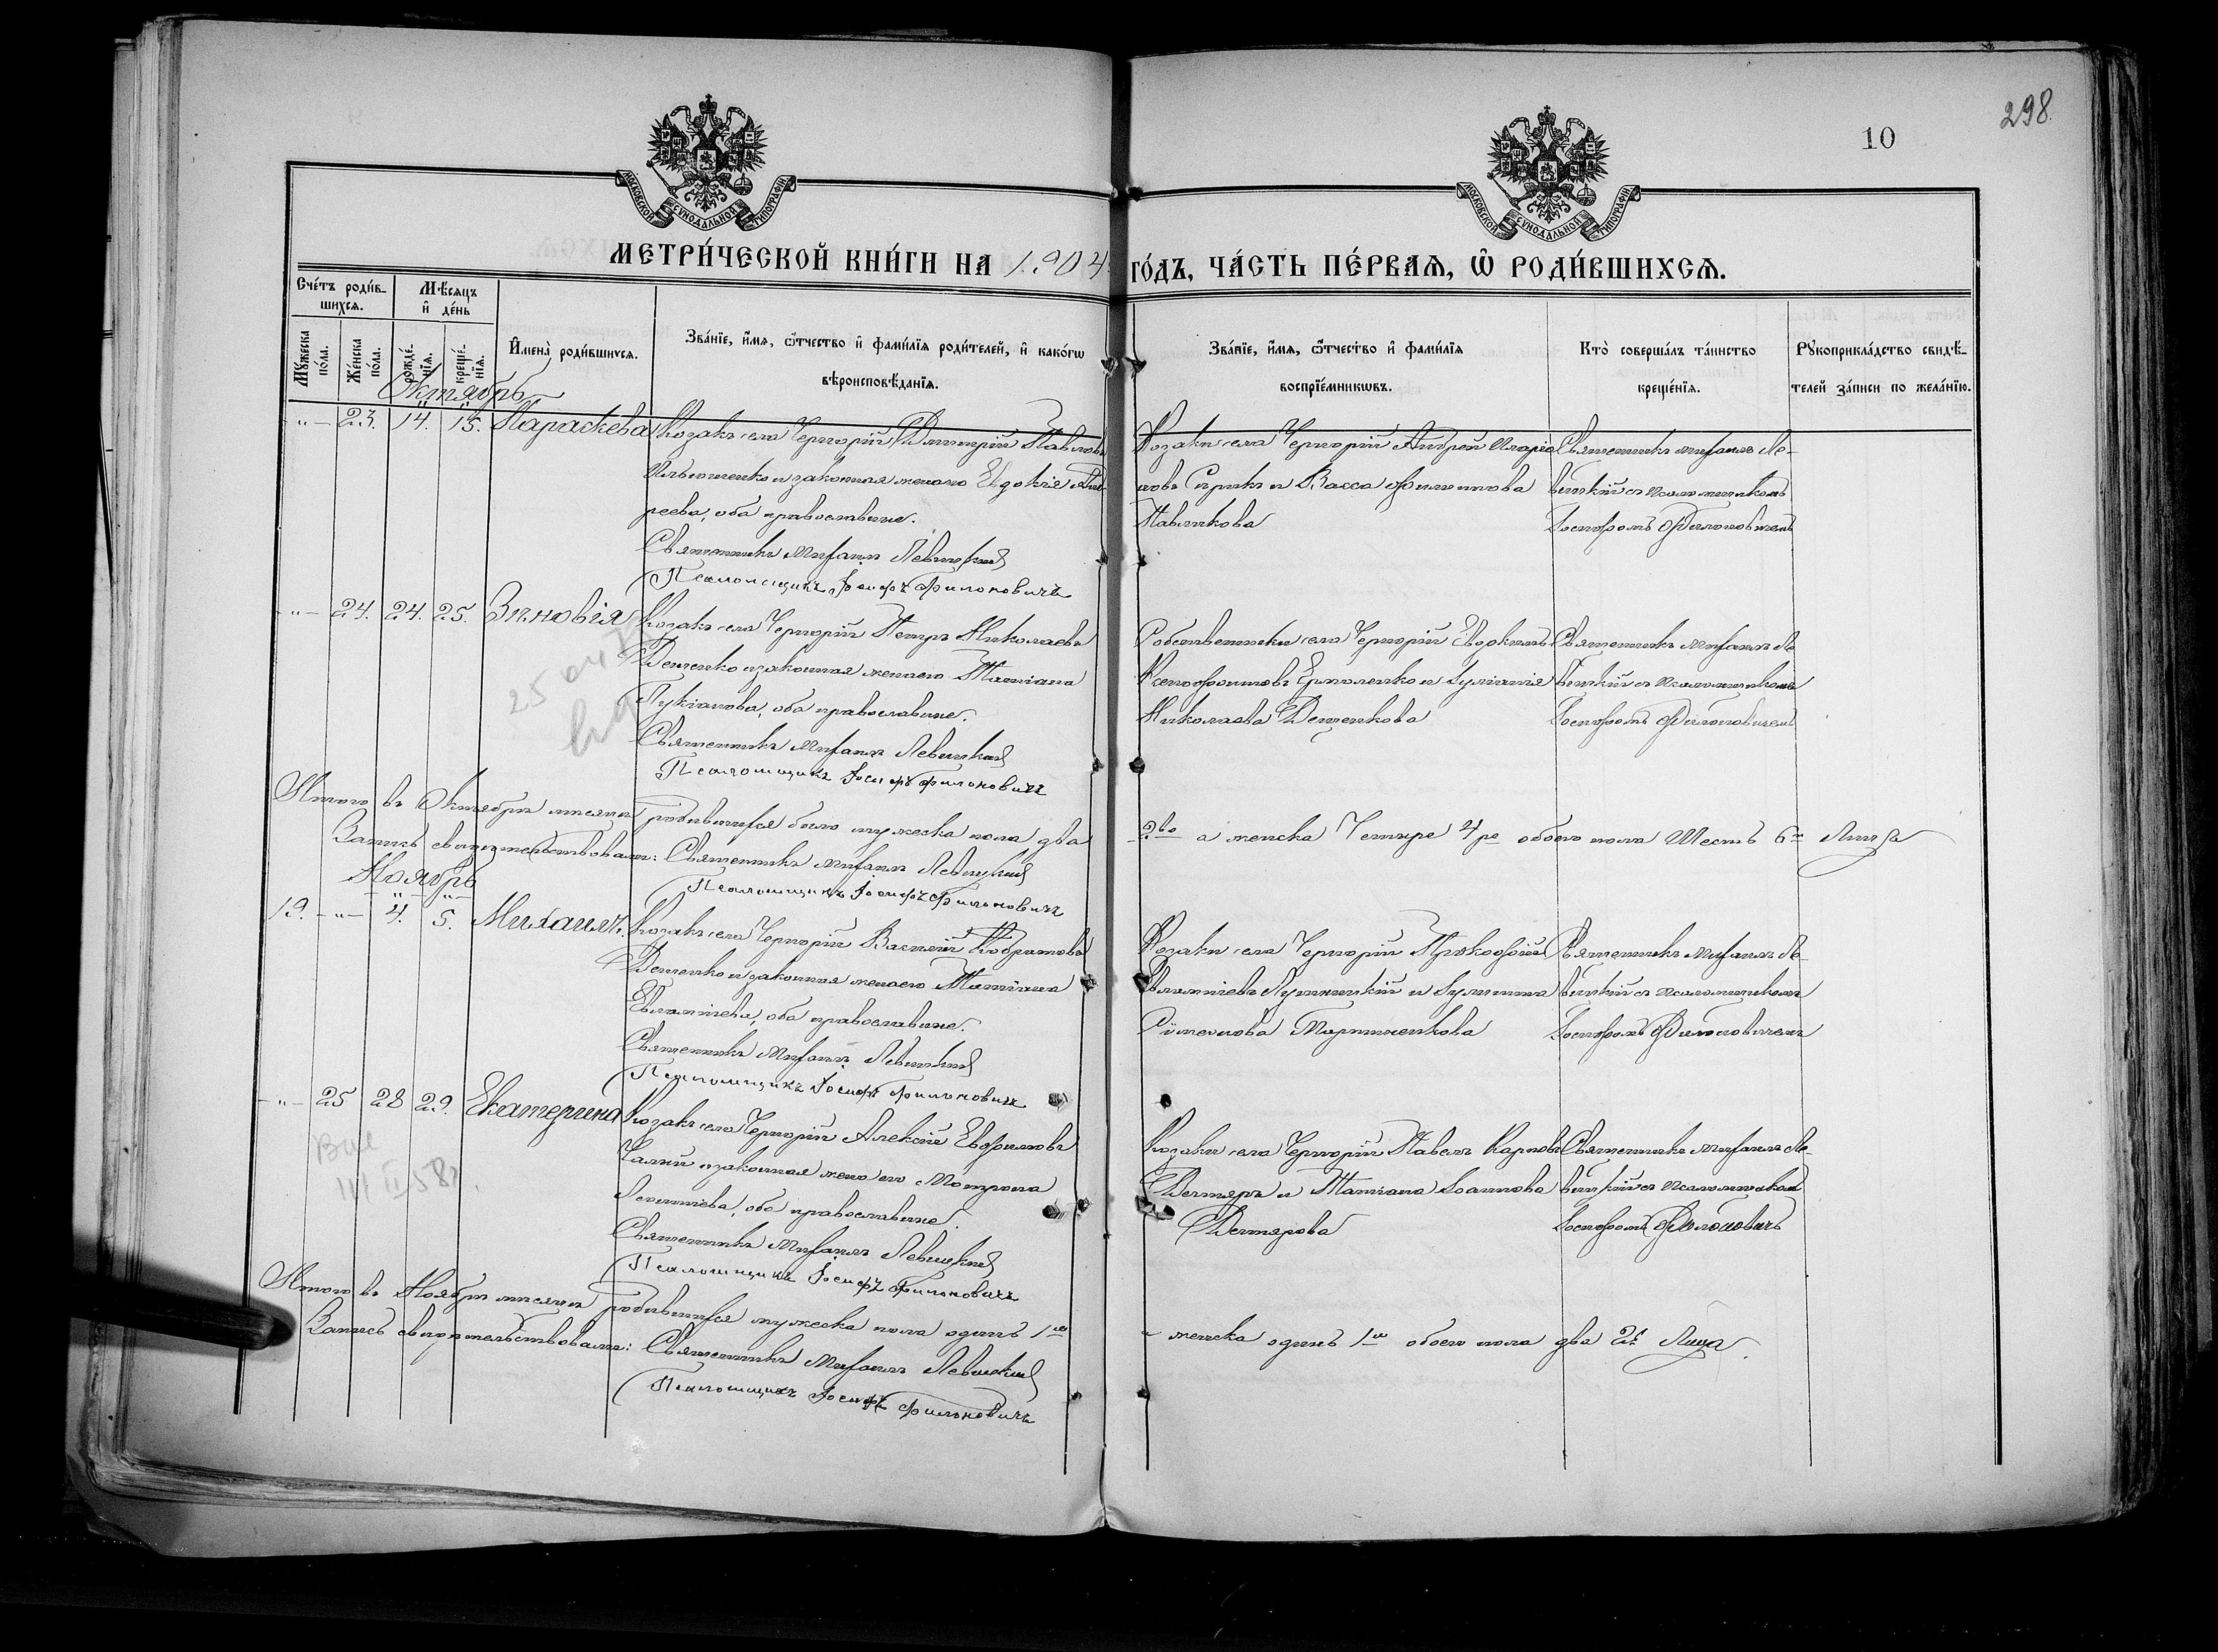 298.
10
МОСКОВСКОЙ СѴНОДАЛЬНОЙ ТИПОГРАФІИ
МОСКОВСКОЙ СѴНОДАЛЬНОЙ ТИПОГРАФІИ
МЕТРИ́ЧЕСКОЙ КНИ́ГИ НА 1904 ГО́ДЪ, ЧА́СТЬ ПЕ́РВАѦ, Ѡ҆ РОДИ́ВШИХСѦ.
Сче́тъ роди́в-
шихсѧ.
Мѣ́сѧцъ
и҆ де́нь
Мꙋжеска по́ла.
Же́нска по́ла.
рожде́-
нїѧ.
креще́-
нїѧ.
И҆мена̀ роди́вшихсѧ.
Зва́нїе, и҆́мѧ, ѻ҆́тчество и҆ фамилїѧ роди́телей, и҆ како́гѡ
вѣроисповѣ́данїѧ.
Зва́нїе, и҆́мѧ, ѻ҆́тчество и҆ фами́лїѧ
воспрїе́мникѡвъ.
Кто̀ соверша́лъ та́инство
креще́нїѧ.
Рꙋкоприкла́дство свидѣ́-
телей за́писи по жела́нїю.
Октябрь
-"- 23. 14. 15. Параскева
Козакъ села Чернорій Димитрій Павловъ
и законная жена его Евдокія Анд-
реева, оба православные.
Священникъ Михаилъ Левицкій
Псаломщикъ Іосифъ Филоновичъ
Козаки села Чернорій Андрей Иларіо-
новъ Сприкъ и Васса Филиппова
Павликова
Священникъ Михаилъ Ле-
вицкій съ псаломщикомъ
Іосифомъ Филоновичемъ
-"- 24. 24. 25. Зиновія
Козакъ села Чернорій Петръ Николаевъ
Деменко и законная жена его Татіана
Лукіанова, оба православные.
Священникъ Михаилъ Левицкій
Псаломщикъ Іосифъ Филоновичъ
Собственники села Чернорій Евдокимъ
Ксенофонтовъ Ермоленко и Іуліанія
Николаева Деменкова
Священникъ Михаилъ Ле-
вицкій съ псаломщикомъ
Іосифомъ Филоновичемъ
Итого въ Октябрѣ мѣсяцѣ родившихся было мужеска пола два 2ва а женска Четыре 4ре обоего пола Шесть 6ть Лицъ
Запись свидѣтельствовали: Священникъ Михаилъ Левицкій
Псаломщикъ Іосифъ Филоновичъ
Ноябрь
19. -"- 4. 5. Михаилъ.
Козакъ села Чернорій Василій Кодратовъ
Деменко и законная жена его Татіана
Евлампіева, оба православные.
Священникъ Михаилъ Левицкій
Псаломщикъ Іосифъ Филоновичъ
Козаки села Чернорій Прокофій
Евлампіевъ и Іулитта
Симеонова Мартыненкова
Священникъ Михаилъ Ле-
вицкій съ псаломщикомъ
Іосифомъ Филоновичемъ
-"- 25 28 29. Екатерина
Козакъ села Чернорій Алексій Евфимовъ
Чалый и законная жена его Мотрона
Леонтіева, оба православные.
Священникъ Михаилъ Левицкій
Псаломщикъ Іосифъ Филоновичъ
Козаки села Чернорій Павелъ Карповъ
Дегтяръ и Татіана Іоаннова
Дегтярова
Священникъ Михаилъ Ле-
вицкій съ псаломщикомъ
Іосифомъ Филоновичъ
Итого въ Ноябрѣ мѣсяцѣ родившихся мужеска пола одинъ 1нъ женска одинъ 1нъ обоего пола два 2ва Лица.
Запись свидѣтельствовали: Священникъ Михаилъ Левицкій
Псаломщикъ Іосифъ Филоновичъ